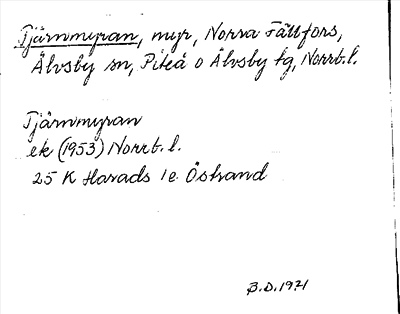 Tjärnmyran, myr, Norra Fällfors,
Älvsby sn, Piteå o Älvsby tg, Norrb.l.
Tjärnmyran
ek (1953) Norrb. l.
25 K Harads 1e Östrand
B.D. 1971